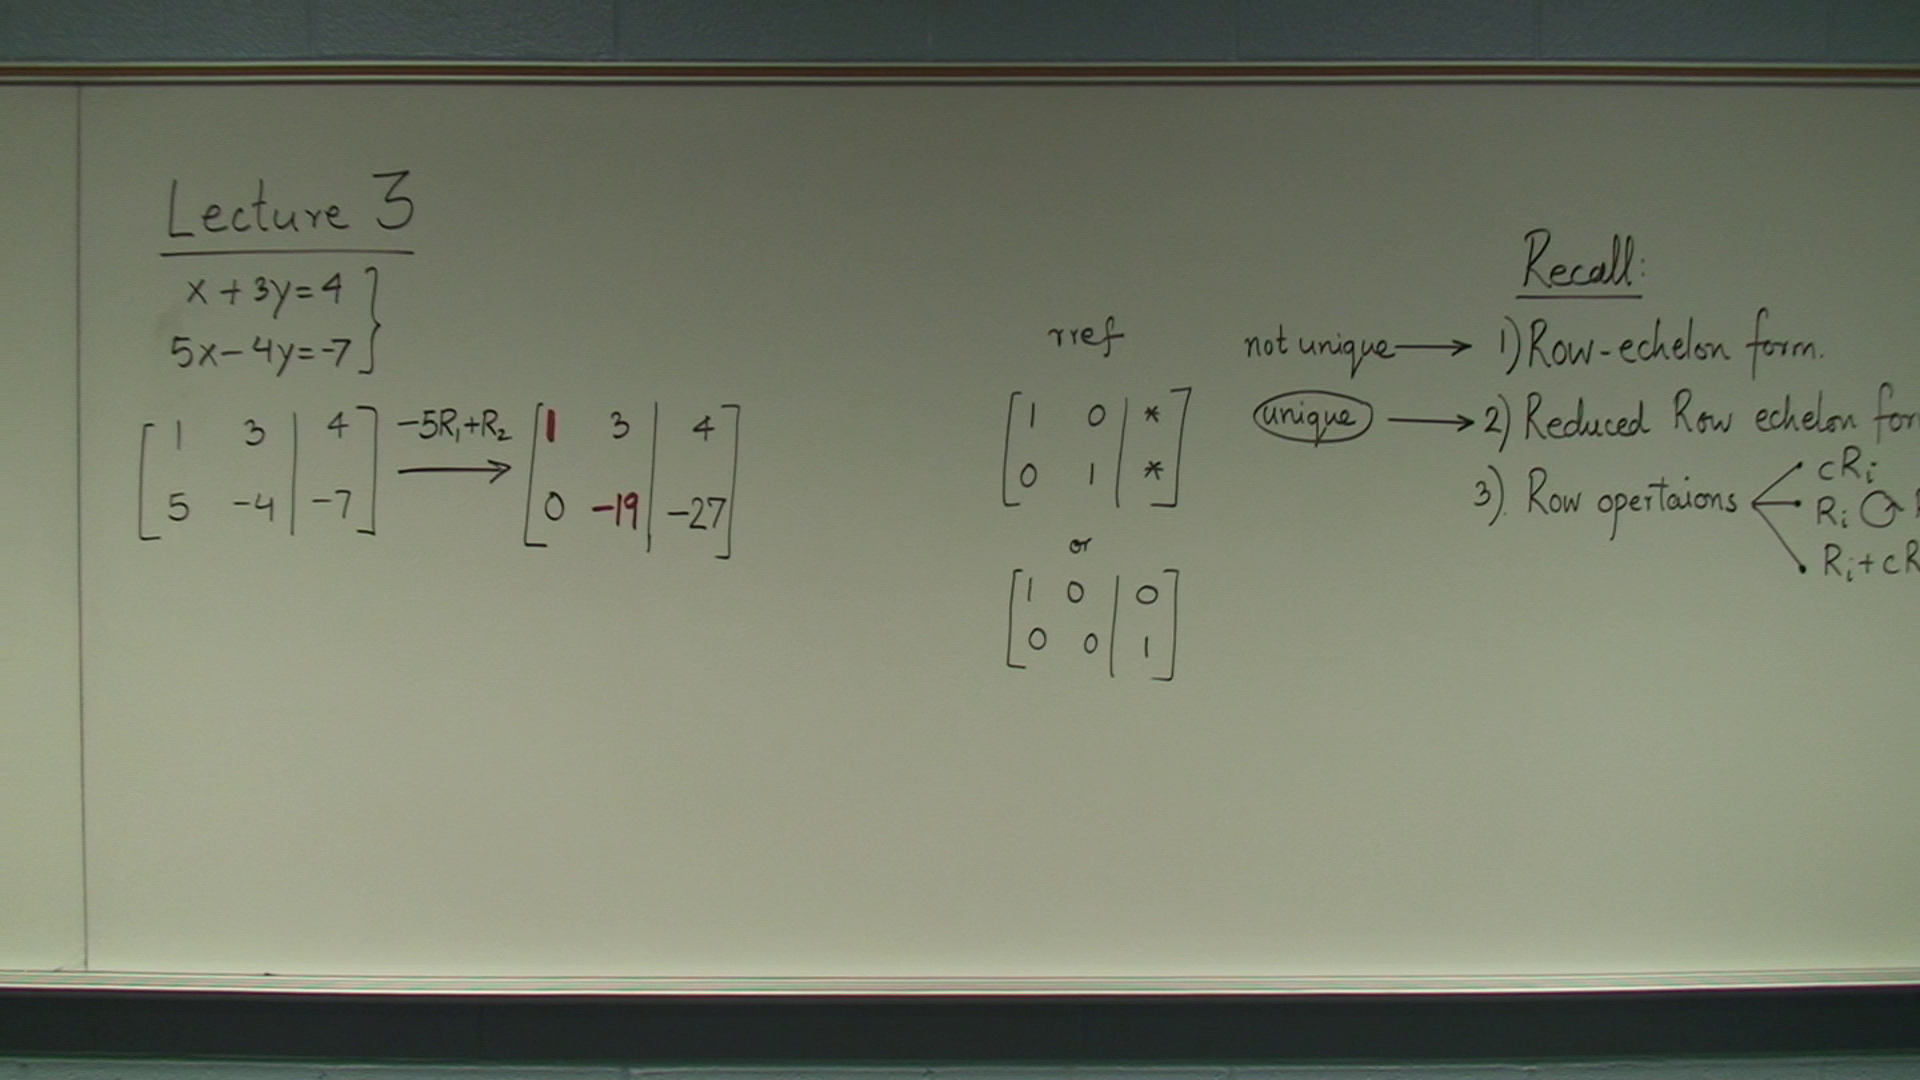 Lecture 3
x + 3y = 4
5x - 4y = -7
[ 1 3 | 4 ]
[ 5 -4 | -7 ]
-5R₁+R₂ →
[ 1 3 | 4 ]
[ 0 -19 | -27 ]
rref
[ 1 0 | * ]
[ 0 1 | * ]
or
[ 1 0 | 0 ]
[ 0 0 | 1 ]
Recall:
not unique → 1) Row-echelon form.
unique → 2) Reduced Row echelon for
3). Row opertaions
cRᵢ
Rᵢ
Rᵢ + cR